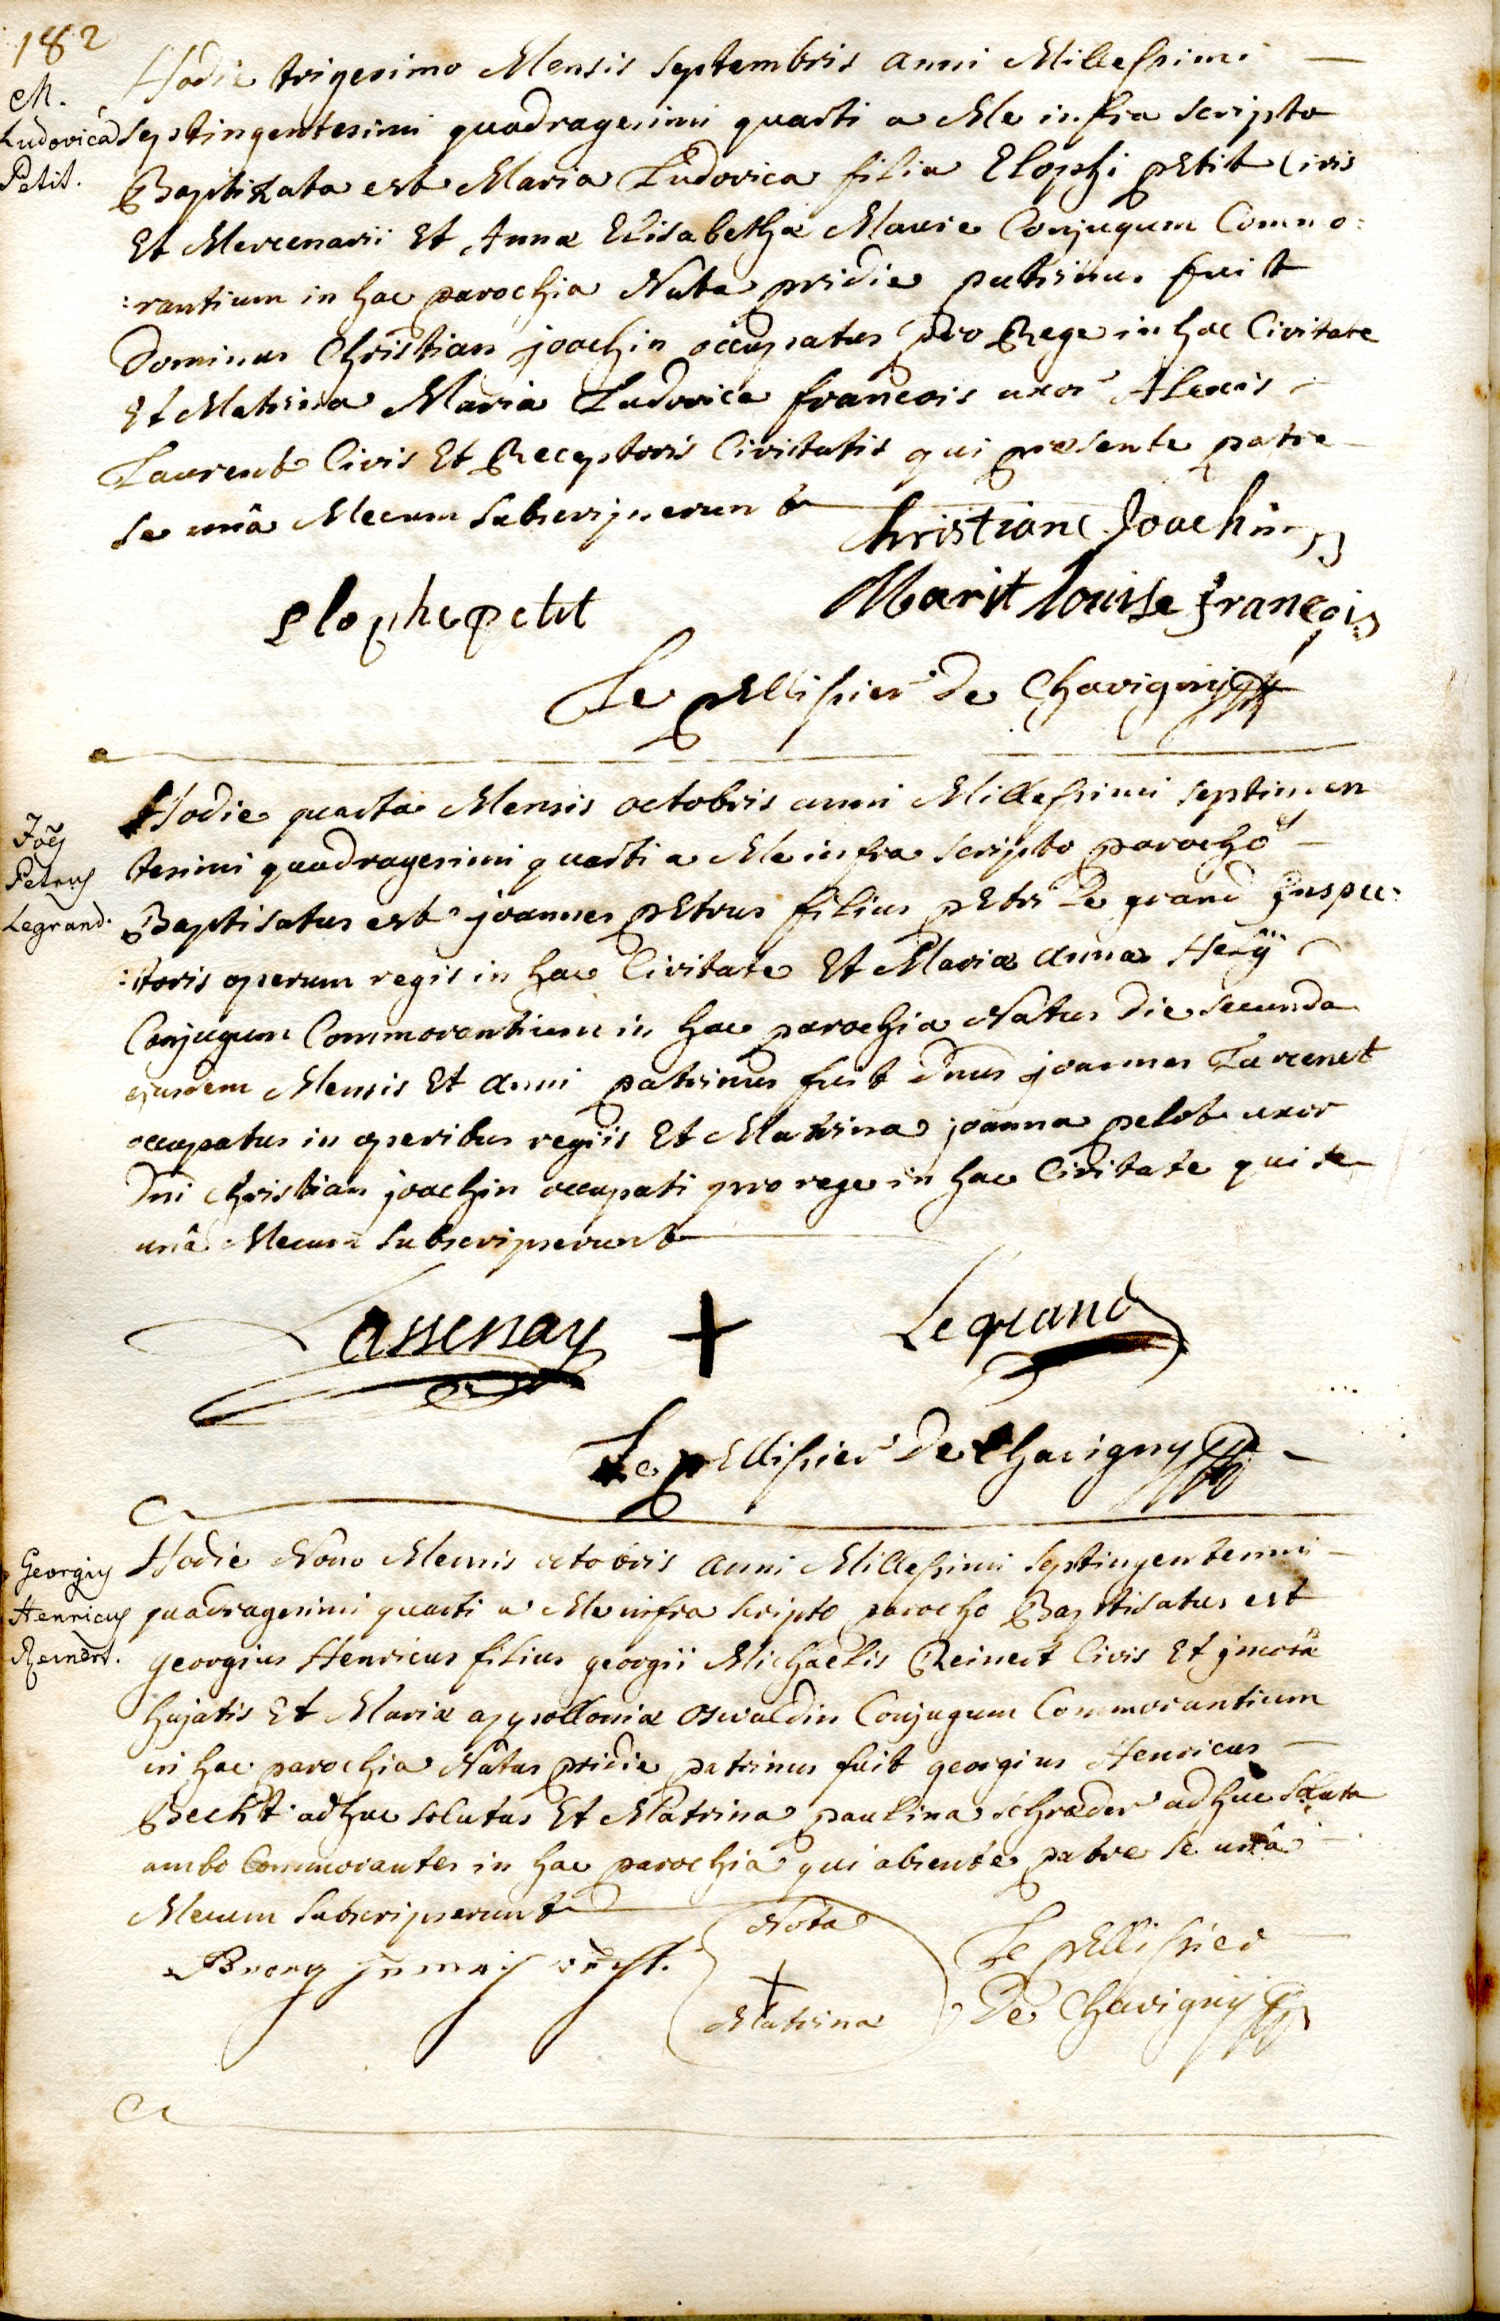 182
M.
Ludovica
Petit.
Hodie trigesimo Mensis Septembris anni Millessimi
septingentesimi quadragesimi quarti a Me infra scripto
Baptizata est Maria Ludovica filia Elophi petit Civis
Et Mercenarii Et Annæ Elisabethæ Marie Conjugum Commo:
:rantium in hac parochia Nata pridie patrinus fuit
Dominus Christian joachin occupatus pro Rege in hac Civitate
Et Matrina Maria Ludovica francois uxor Alexis
Laurent Civis Et Receptoris Civitatis qui præsente patre
se unâ Mecum Subscripserunt
Christianc Joachin
elophe petit
Marit louise françois
Le pellissier de Chavigny
Joēs
Petrus
Legrand.
Hodie quarta Mensis octobris anni Millessimi septingen
tesimi quadragesimi quarti a Me infra scripto parocho
Baptisatus est joannes petrus filius petri Le grand Inspec:
:toris operum regis in hac Civitate Et Mariæ annæ Hely
Conjugum Commorantium in hac parochia Natus die secunda
ejusdem Mensis Et anni patrinus fuit Dnus joannes
occupatus in operibus regiis Et Matrina joanna pelot uxor
Dni Christian joachin occupati pro rege in hac Civitate qui se
unâ Mecum Subscripserunt
Lassenay + Legrand
Le pellissier De Chavigny
Georgius
Henricus
Reinert.
Hodie Nono Mensis octobris anni Millessimi septingentesimi
quadragesimi quarti a Me infra scripto parocho Baptisatus est
georgius Henricus filius georgii Michaelis Reinert Civis Et
hujatis Et Mariæ appolloniæ oswaldin Conjugum Commorantium
in hac parochia Natus pridie patrinus fuit georgius Henricus
Beckt adhuc solutus Et Matrina paulina schræder adhuc soluta
ambo Commorantes in hac parochia qui absente patre se unâ
Mecum Subscripserunt
Nota
+
Matrina
Le pellissier
De Chavigny